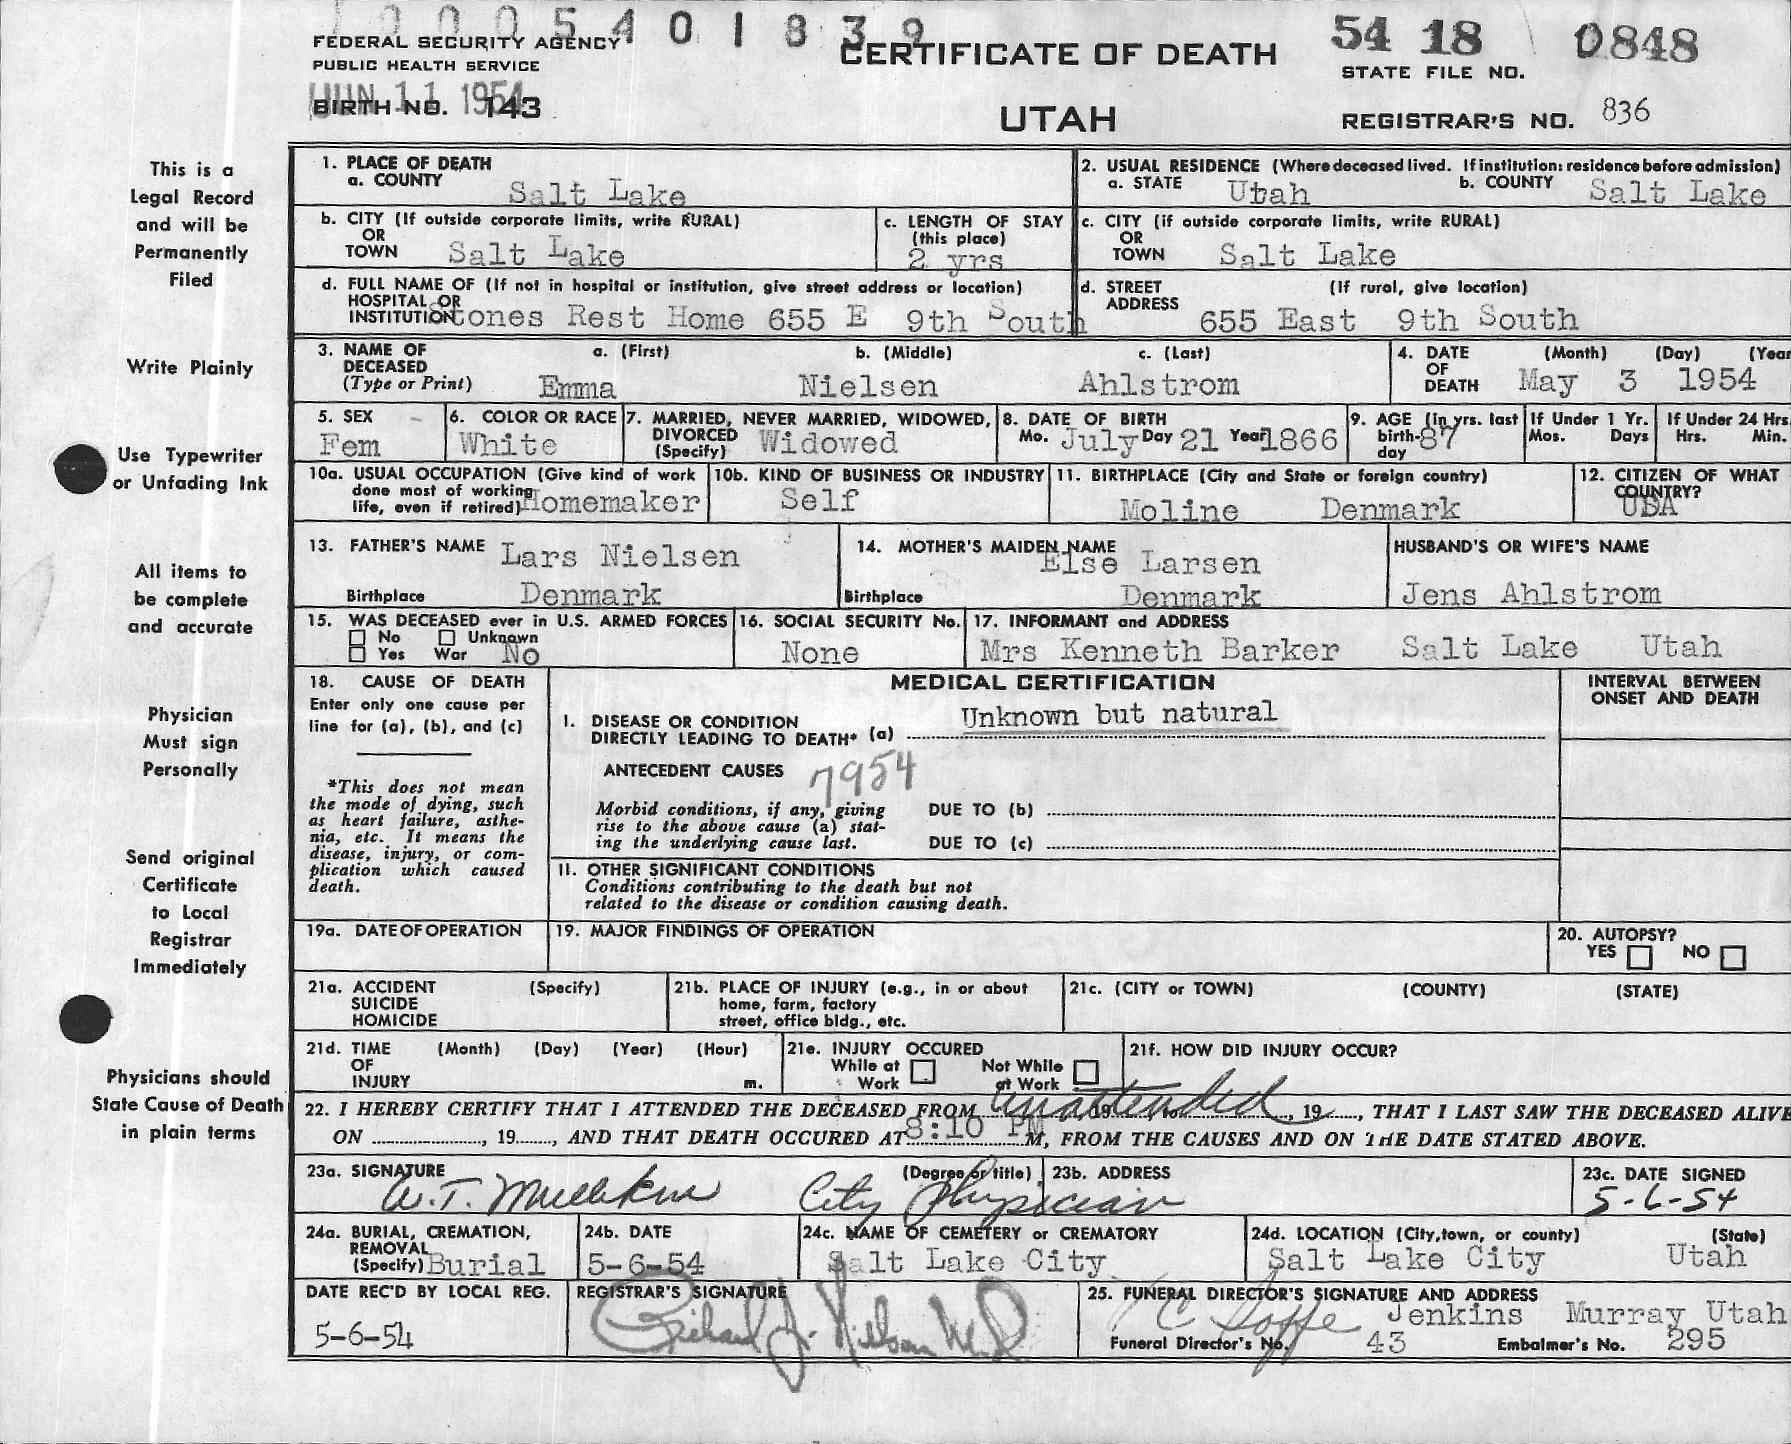 1000540 1839
FEDERAL SECURITY AGENCY
PUBLIC HEALTH SERVICE
JUN 11 1954
BIRTH NO. 143
CERTIFICATE OF DEATH
UTAH
54 18 0848
STATE FILE NO.
REGISTRAR'S NO. 836
This is a
Legal Record
and will be
Permanently
Filed
Write Plainly
Use Typewriter
or Unfading Ink
All items to
be complete
and accurate
Physician
Must sign
Personally
Send original
Certificate
to Local
Registrar
Immediately
Physicians should
State Cause of Death
in plain terms
1. PLACE OF DEATH
a. COUNTY Salt Lake
2. USUAL RESIDENCE (Where deceased lived. If institution: residence before admission)
a. STATE Utah b. COUNTY Salt Lake
b. CITY (If outside corporate limits, write RURAL)
OR
TOWN Salt Lake
c. LENGTH OF STAY
(this place)
2 yrs
c. CITY (if outside corporate limits, write RURAL)
OR
TOWN Salt Lake
d. FULL NAME OF (If not in hospital or institution, give street address or location)
HOSPITAL OR
INSTITUTION Stones Rest Home 655 E 9th South
d. STREET (If rural, give location)
ADDRESS 655 East 9th South
3. NAME OF a. (First) b. (Middle) c. (Last)
DECEASED
(Type or Print) Emma Nielsen Ahlstrom
4. DATE (Month) (Day) (Year
OF
DEATH May 3 1954
5. SEX
Fem
6. COLOR OR RACE
White
7. MARRIED, NEVER MARRIED, WIDOWED,
DIVORCED
(Specify) Widowed
8. DATE OF BIRTH
Mo. July Day 21 Year 1866
9. AGE (in yrs. last
birth-
day 87
If Under 1 Yr.
Mos. Days
If Under 24 Hrs.
Hrs. Min.
10a. USUAL OCCUPATION (Give kind of work
done most of working
life, even if retired) Homemaker
10b. KIND OF BUSINESS OR INDUSTRY
Self
11. BIRTHPLACE (City and State or foreign country)
Moline Denmark
12. CITIZEN OF WHAT
COUNTRY?
USA
13. FATHER'S NAME Lars Nielsen
Birthplace Denmark
14. MOTHER'S MAIDEN NAME
Else Larsen
Birthplace Denmark
HUSBAND'S OR WIFE'S NAME
Jens Ahlstrom
15. WAS DECEASED ever in U.S. ARMED FORCES
No Unknown
Yes War No
16. SOCIAL SECURITY No.
None
17. INFORMANT and ADDRESS
Mrs Kenneth Barker Salt Lake Utah
18. CAUSE OF DEATH
Enter only one cause per
line for (a), (b), and (c)
*This does not mean
the mode of dying, such
as heart failure, asthe-
nia, etc. It means the
disease, injury, or com-
plication which caused
death.
MEDICAL CERTIFICATION
I. DISEASE OR CONDITION
DIRECTLY LEADING TO DEATH* (a) Unknown but natural
ANTECEDENT CAUSES 7954
Morbid conditions, if any, giving
rise to the above cause (a) stat-
ing the underlying cause last.
DUE TO (b)
DUE TO (c)
11. OTHER SIGNIFICANT CONDITIONS
Conditions contributing to the death but not
related to the disease or condition causing death.
INTERVAL BETWEEN
ONSET AND DEATH
19a. DATE OF OPERATION
19. MAJOR FINDINGS OF OPERATION
20. AUTOPSY?
YES NO
21a. ACCIDENT (Specify)
SUICIDE
HOMICIDE
21b. PLACE OF INJURY (e.g., in or about
home, farm, factory
street, office bldg., etc.
21c. (CITY or TOWN) (COUNTY) (STATE)
21d. TIME (Month) (Day) (Year) (Hour)
OF
INJURY m.
21e. INJURY OCCURED
While at Work Not While at Work
21f. HOW DID INJURY OCCUR?
22. I HEREBY CERTIFY THAT I ATTENDED THE DECEASED FROM unattended 19 to , 19 , THAT I LAST SAW THE DECEASED ALIVE
ON , 19 , AND THAT DEATH OCCURED AT 8:10 PM M, FROM THE CAUSES AND ON THE DATE STATED ABOVE.
23a. SIGNATURE (Degree or title)
W.T. City Physician
23b. ADDRESS
23c. DATE SIGNED
5-6-54
24a. BURIAL, CREMATION,
REMOVAL
(Specify) Burial
24b. DATE
5-6-54
24c. NAME OF CEMETERY or CREMATORY
Salt Lake City
24d. LOCATION (City, town, or county) (State)
Salt Lake City Utah
DATE REC'D BY LOCAL REG.
5-6-54
REGISTRAR'S SIGNATURE
Richard J. Nilson M.D
25. FUNERAL DIRECTOR'S SIGNATURE AND ADDRESS
Jenkins Murray Utah
Funeral Director's No. 43 Embalmer's No. 295